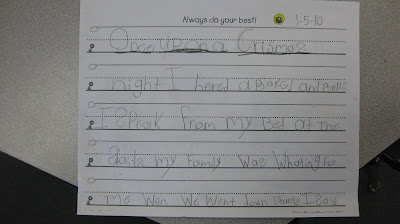 Always do your best! 1-5-10
Once upon a Crismas
night I hered a and
I from my Bed at The
my family was Whating for
me Wen We Went down I saw